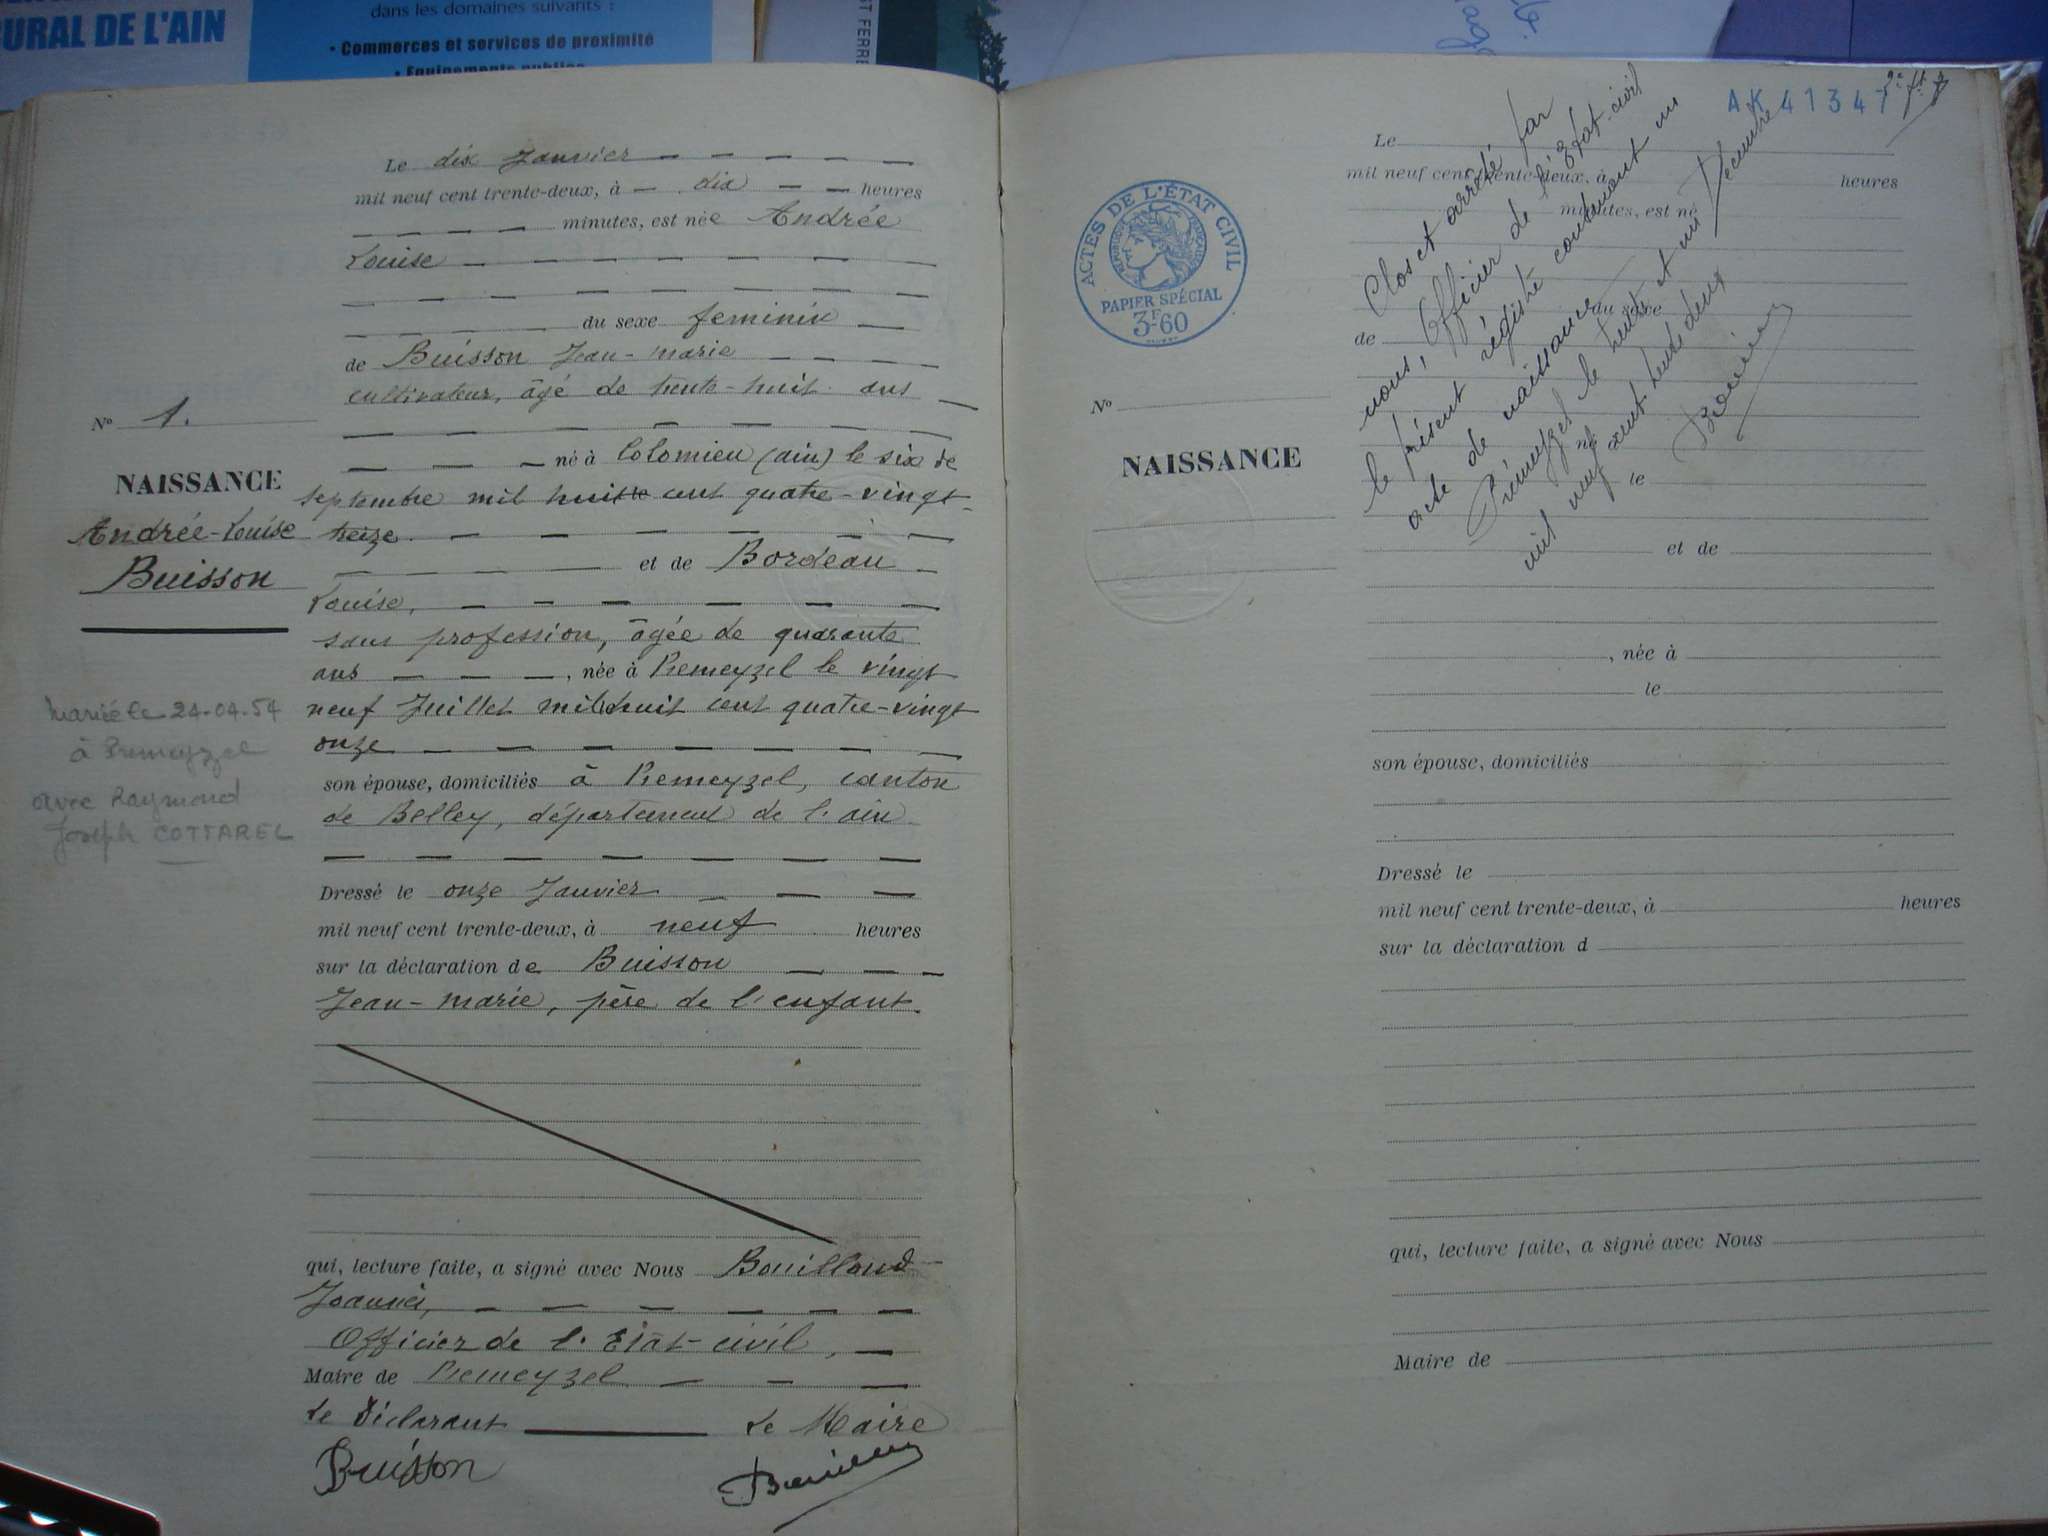 URAL DE L'AIN
dans les domaines suivants :
• Commerces et services de proximité
• Equipements publics
ST FERRE
Le dix Janvier
mil neuf cent trente-deux, à dix heures
minutes, est née Andrée
Louise
du sexe feminin
de Buisson Jean-marie
cultivateur, âgé de trente-huit ans
né à Colomieu (ain) le six de
septembre mil huit cent quatre-vingt
treize
et de Bordeau
Louise,
sans profession, âgée de quarante
ans , née à Premeyzel le vingt
neuf Juillet mil huit cent quatre-vingt
onze
son épouse, domiciliés à Premeyzel, canton
de Belley, département de l'ain
Dressé le onze Janvier
mil neuf cent trente-deux, à neuf heures
sur la déclaration de Buisson
Jean-marie, père de l'enfant.
qui, lecture faite, a signé avec Nous Bouilloud
Joannès,
Officier de l'Etât-civil,
Maire de Premeyzel
Le Déclarant Le Maire
Buisson
No 1.
NAISSANCE
Andrée-Louise
Buisson
Mariée le 24-04-54
à Premeyzel
avec Raymond
Joseph COTTAREL
AK 41347
ACTES DE L'ÉTAT CIVIL
RÉPUBLIQUE FRANÇAISE
PAPIER SPÉCIAL
3F60
No
NAISSANCE
Clos et arrêté par
nous, Officier de l'Etat-civil
le présent régistre contenant un
acte de naissance
Prémeyzel le trente et un Décembre
mil neuf cent trente deux
Le
mil neuf cent trente-deux, à heures
minutes, est né
du sexe
de
né
le
et de
, née à
le
son épouse, domiciliés
Dressé le
mil neuf cent trente-deux, à heures
sur la déclaration d
qui, lecture faite, a signé avec Nous
Maire de